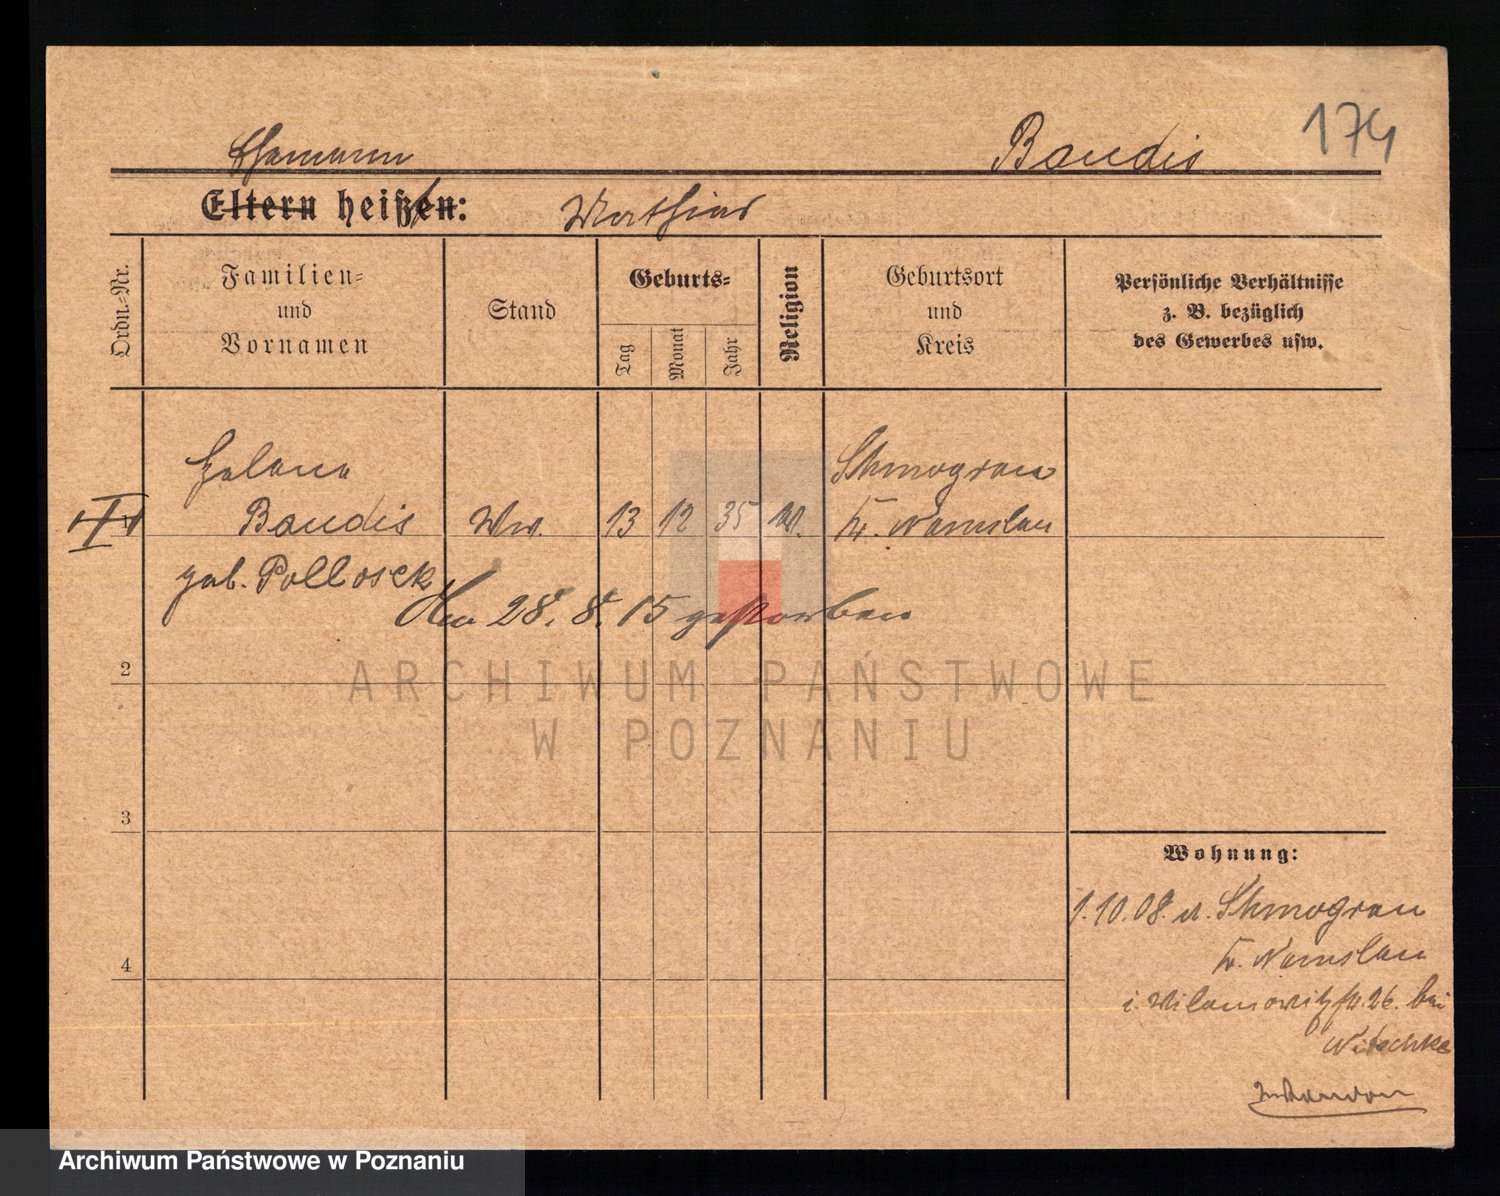 174
Ehemann Baudis
Eltern heißen: Mathias
Ordn.-Nr.
Familien-
und
Vornamen
Stand
Geburts-
Tag
Monat
Jahr
Religion
Geburtsort
und
Kreis
Persönliche Verhältnisse
z. B. bezüglich
des Gewerbes usw.
Helene Schmograu
I Baudis Ww. 13 12 35 Kr. Namslau
geb. Pollosek
Am 28. 8. 15 gestorben
2
ARCHIWUM PAŃSTWOWE
W POZNANIU
3
Wohnung:
1.10.08. Schmograu
4
Kr. Namslau
i. Wilamowitzstr. 26. bei
Nitschke
Archiwum Państwowe w Poznaniu